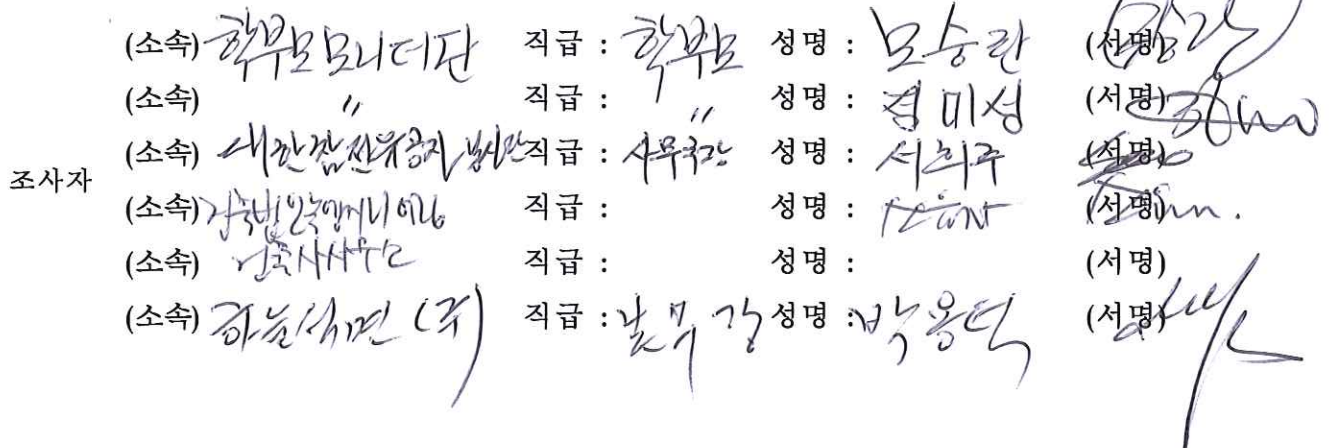 (소속) 학부모모니터단 직급 : 학부모 성명 : 모승란 (서명)
(소속) 〃 직급 : 〃 성명 : 경미성 (서명)
(소속) 대한참전유공자 봉사단 직급 : 사무국장 성명 : 서희주 (서명)
조사자
(소속) 직급 : 성명 : (서명)
(소속) 건축사사무소 직급 : 성명 : (서명)
(소속) 하늘석면(주) 직급 : 성명 : 박용덕 (서명)